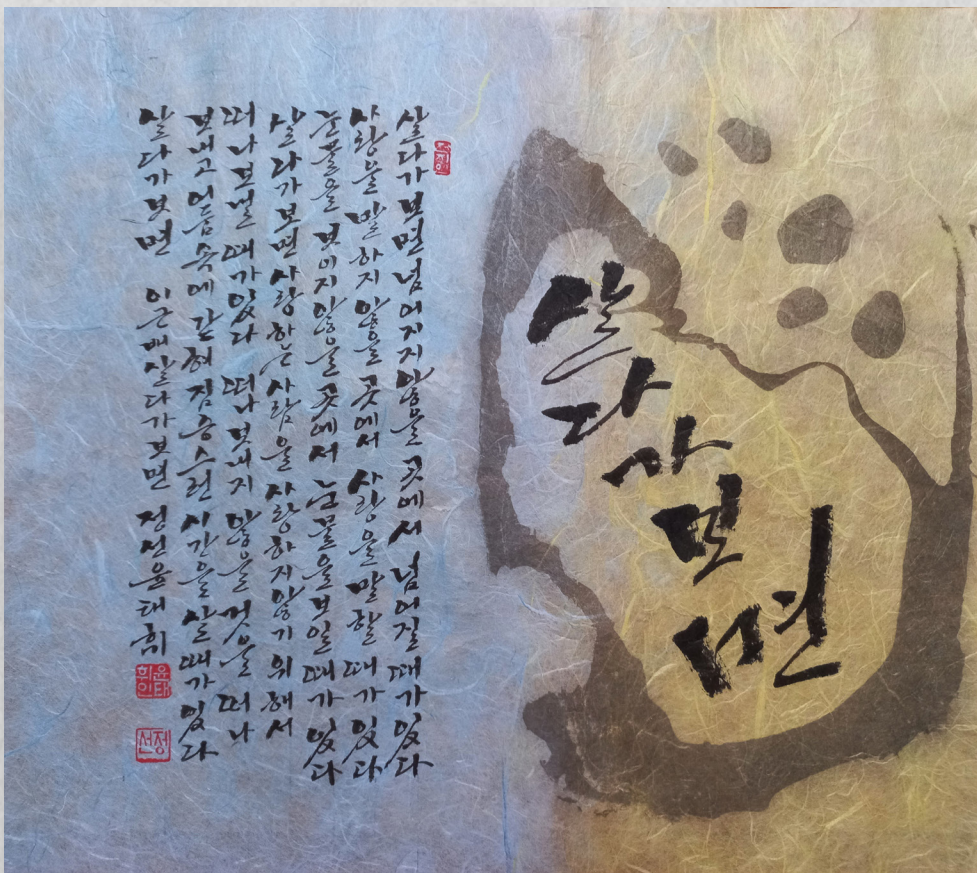 살다가보면
살다가보면 넘어지지않을 곳에서 넘어질때가있다
사랑을 말하지않을 곳에서 사랑을 말할때가있다
눈물을 보이지않을 곳에서 눈물을보일때가있다
살다가보면 사랑하는 사람을 사랑하지않기 위해서
떠나보낼때가있다 떠나보내지 않을것을 떠나
보내고 어둠속에 갇혀 짐승스런 시간을 살때가있다
살다가보면 이근배 살다가보면 정선 윤태휘
윤태휘인
정선